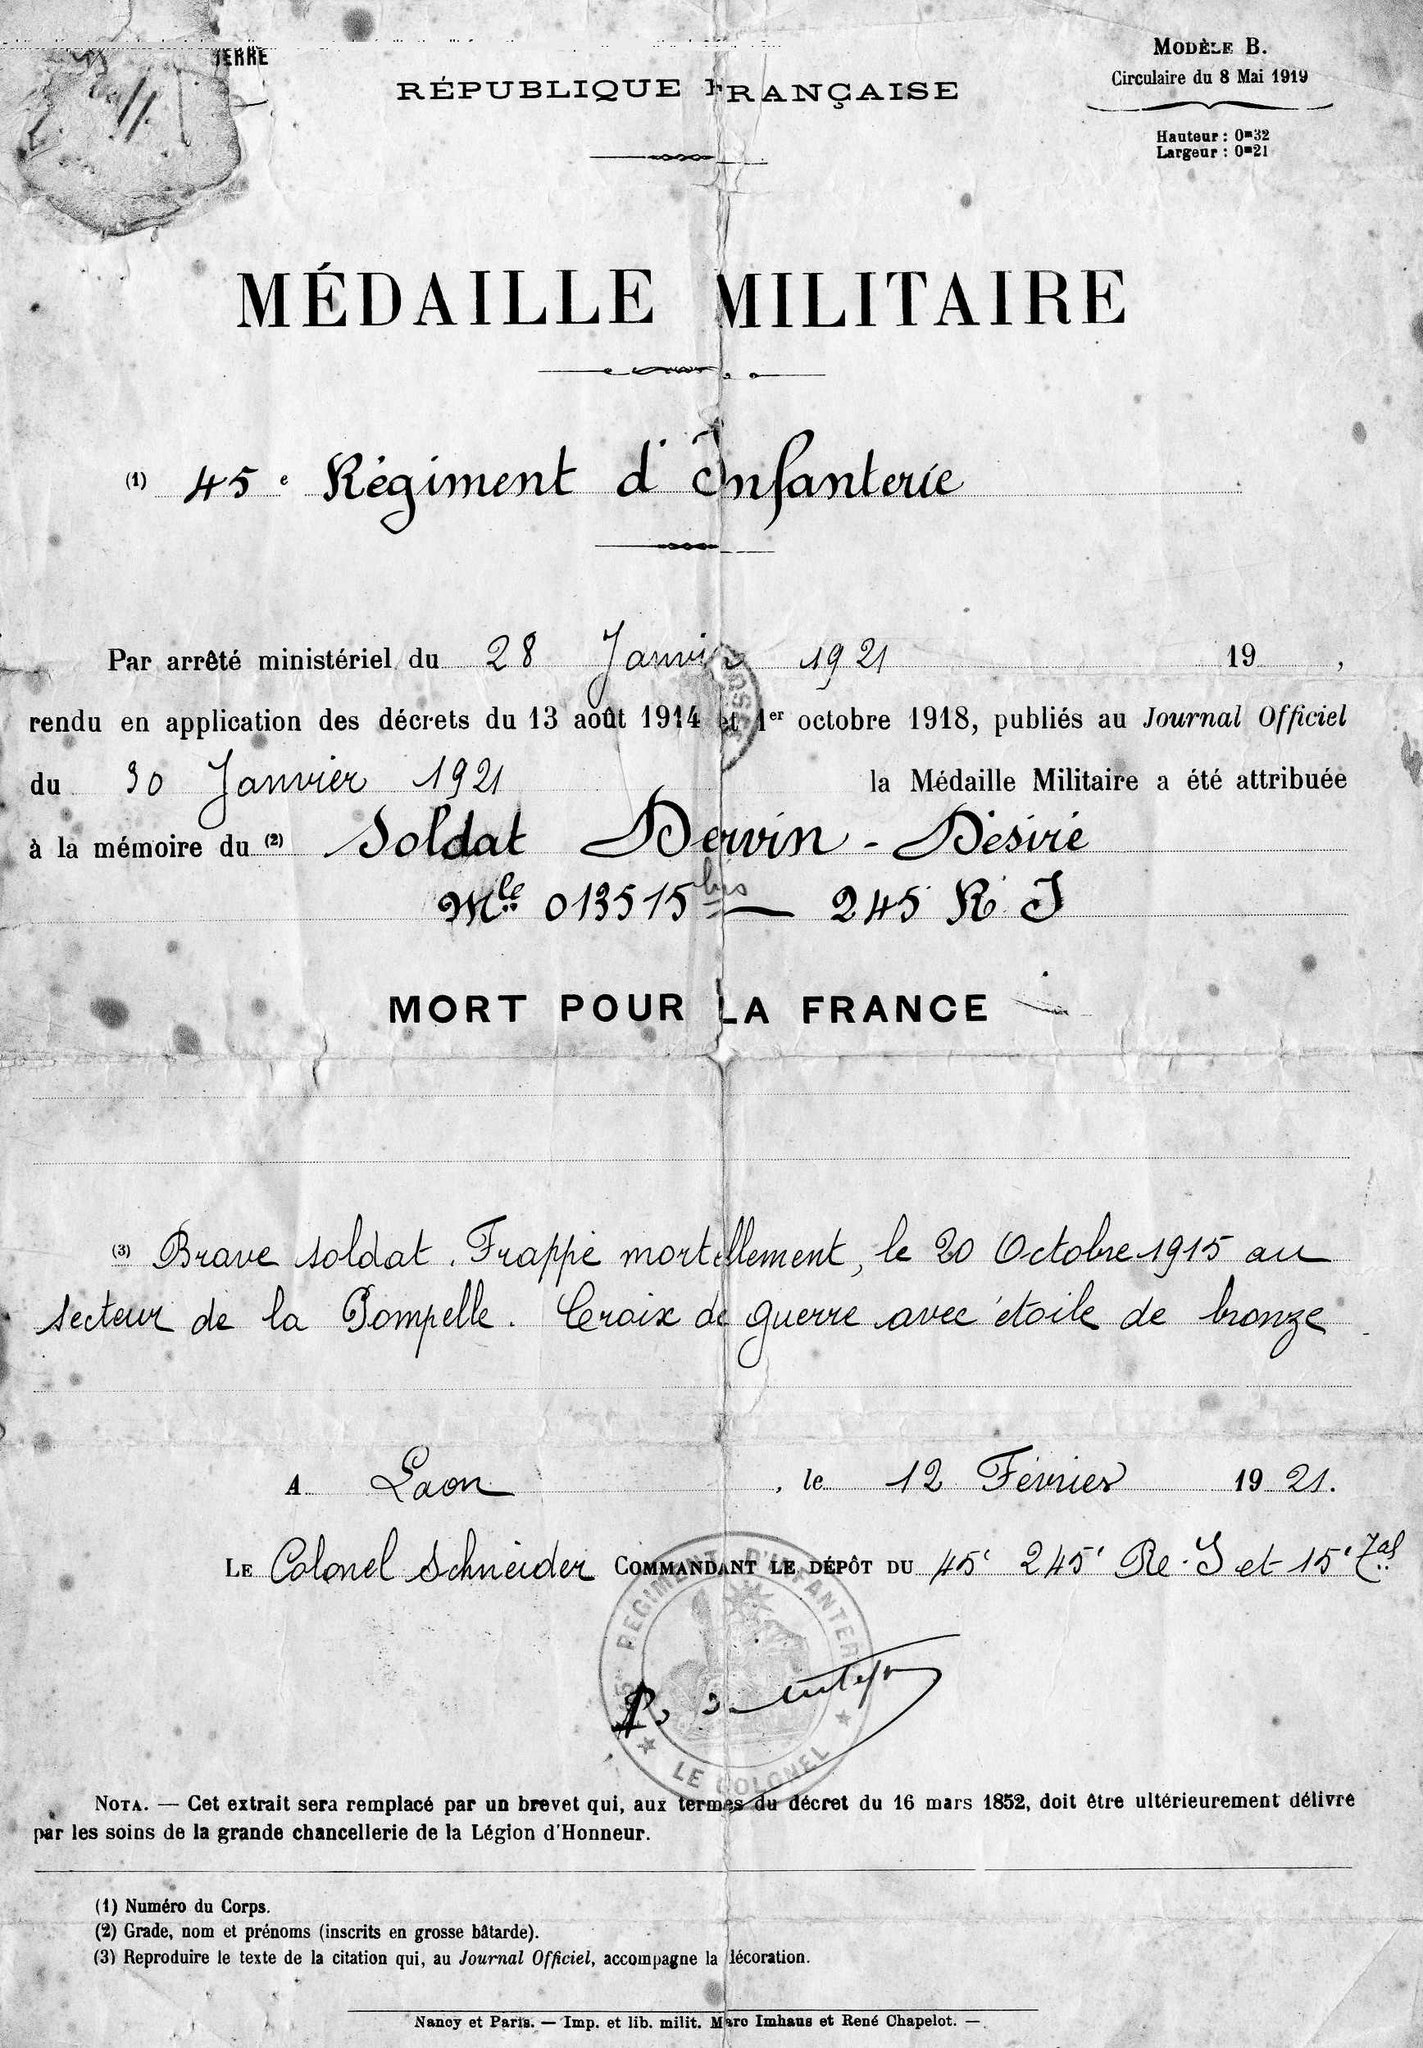 RÉPUBLIQUE FRANÇAISE
MODÈLE B.
Circulaire du 8 Mai 1919
Hauteur : 0m32
Largeur : 0m21
MÉDAILLE MILITAIRE
(1) 45e Régiment d'Infanterie
Par arrêté ministériel du 28 Janvier 1921 19 ,
rendu en application des décrets du 13 août 1914 et 1er octobre 1918, publiés au Journal Officiel
du 30 Janvier 1921 la Médaille Militaire a été attribuée
à la mémoire du (2) Soldat Dervin - Désiré
Mle 013515 bis — 245 R. I
MORT POUR LA FRANCE
(3) Brave soldat. Frappé mortellement, le 20 Octobre 1915 au
secteur de la Pompelle. Croix de guerre avec étoile de bronze
A Laon , le 12 Février 19 21.
LE Colonel Schneider COMMANDANT LE DÉPÔT DU 45e 245e R. I et 15e Zal
RÉGIMENT D'INFANTERIE
LE COLONEL
NOTA. — Cet extrait sera remplacé par un brevet qui, aux termes du décret du 16 mars 1852, doit être ultérieurement délivré
par les soins de la grande chancellerie de la Légion d'Honneur.
(1) Numéro du Corps.
(2) Grade, nom et prénoms (inscrits en grosse bâtarde).
(3) Reproduire le texte de la citation qui, au Journal Officiel, accompagne la décoration.
Nancy et Paris. — Imp. et lib. milit. Marc Imhaus et René Chapelot. —